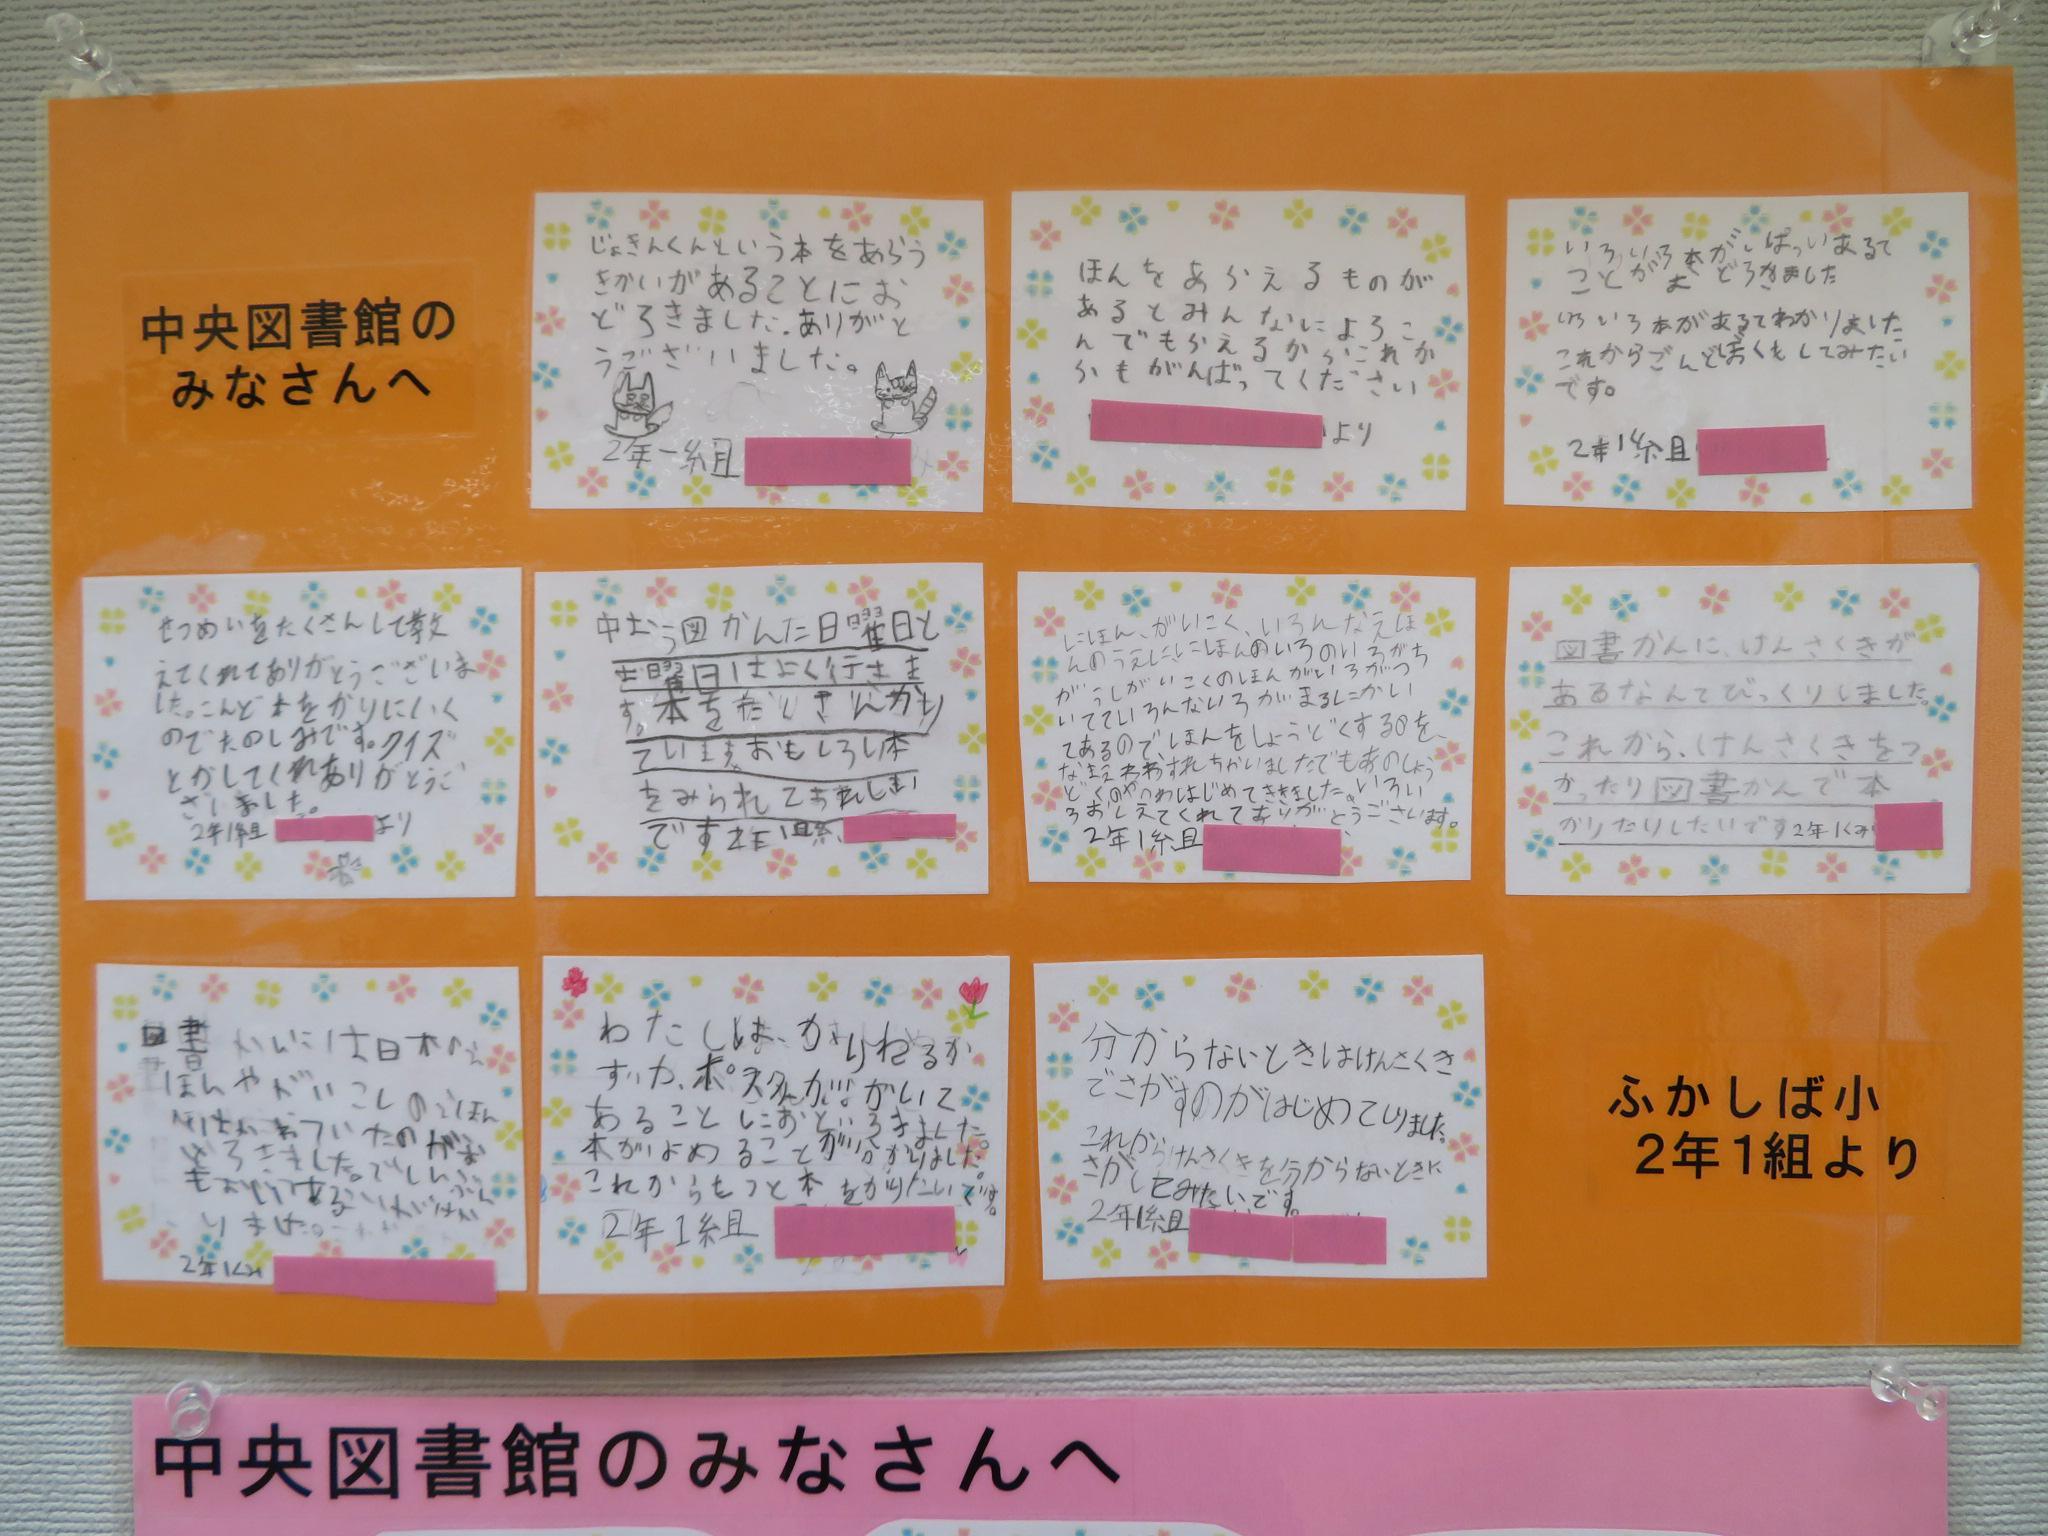 中央図書館の
みなさんへ
じょきんくんという本をあらう
きかいがあることにお
どろきました。ありがと
うございました。
2年一組
ほんをあらえるものが
あるとみんなによろこ
んでもらえるからこれか
らもがんばってください
より
いろいろ本がいぱっいあるて
ことがおどろきました
いろいろ本があるてわかりました
これからこんどぼくもしてみたい
です。
2年1組
せつめいをたくさんして教
えてくれてありがとうございま
した。こんど本をかりにいく
のでたのしみです。クイズ
とかしてくれありがとうご
ざいました。
2年1組 より
中おう図かんた日曜日と
土曜日はよく行きま
す。本をたくさんかり
ています。おもしろい本
をみられてうれしい
です2年1組
にほん、がいこく、いろんなえほ
んのうえににほんのいろのいろがち
がうしがいこくのほんがいろがつ
いてていろんないろがまるにかい
てあるのでほんをしょうどくするのを、
なまえわわすれちゃいましたでもあのしょう
どくのやつわはじめてききました。いろい
ろおしえてくれてありがとうございます。
2年1組
図書かんに、けんさくきが
あるなんてびっくりしました。
これから、けんさくきをつ
かったり図書かんで本
かりたりしたいです2年1くみ
図書かんには日本の
ほんやがいこくのえほん
どろきました。
りました。
2年1くみ
わたしは、かりねるか
すいか、ポスターががいて
あることにおどろきました。
本がよめることがわかりました。
これからもっと本をかりたいです。
2年1組
分からないときはけんさくき
でさがすのがはじめてしりました。
これからけんさくきを分からないときに
さがしてみたいです。
2年1組
ふかしば小
2年1組より
中央図書館のみなさんへ